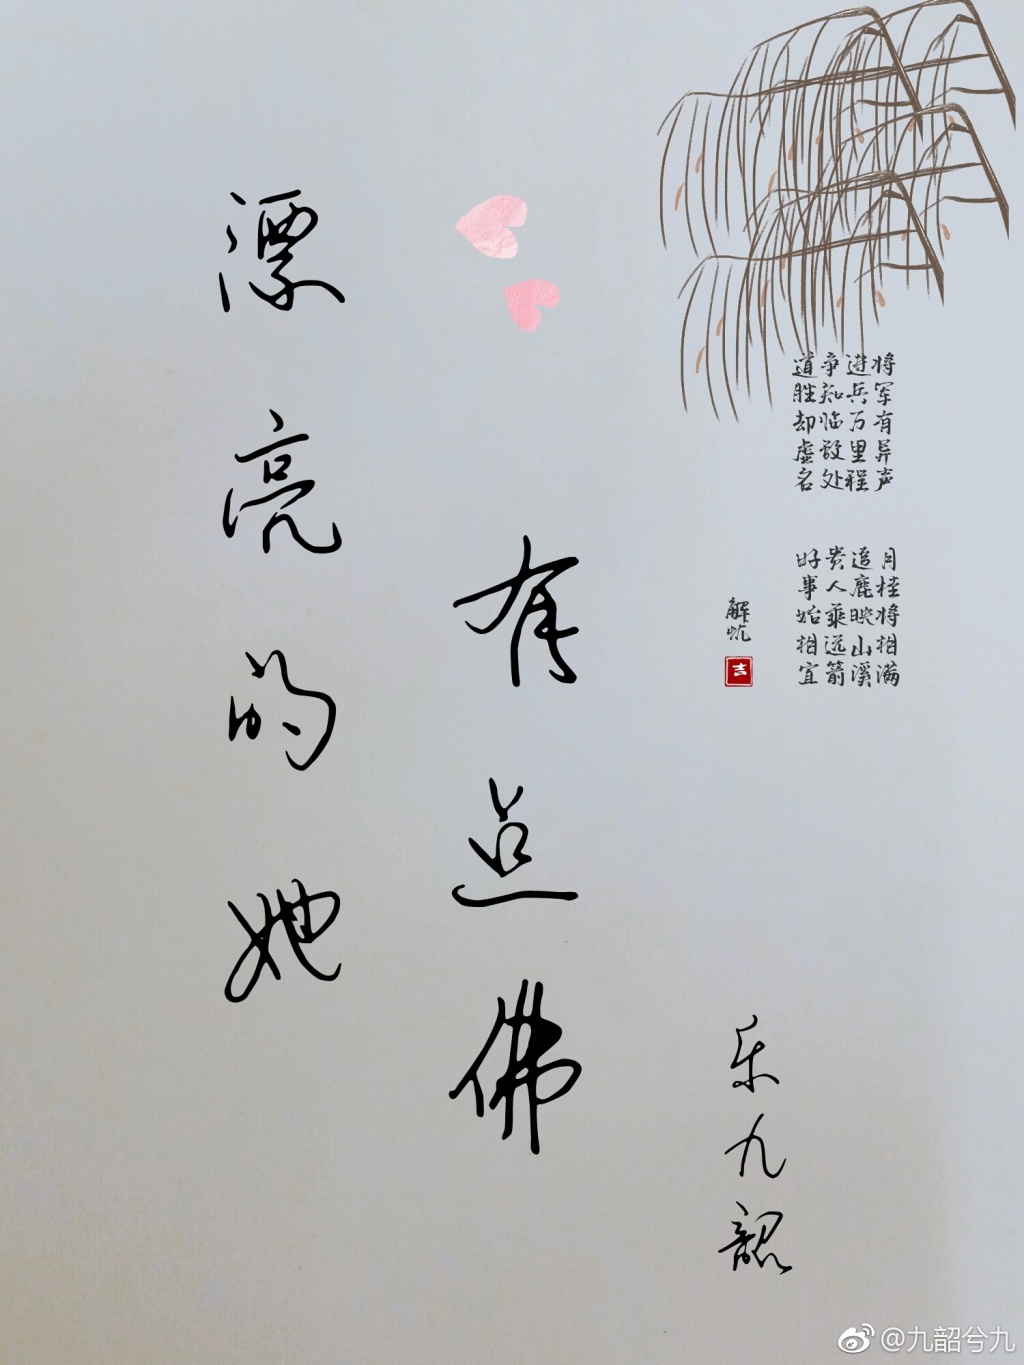 漂亮的她
有点佛
乐九韶
将军有异声
进兵万里程
争知临敌处
道胜却虚名
月桂将相满
追鹿映山溪
贵人乘远箭
好事始相宜
解忧
吉
@九韶兮九